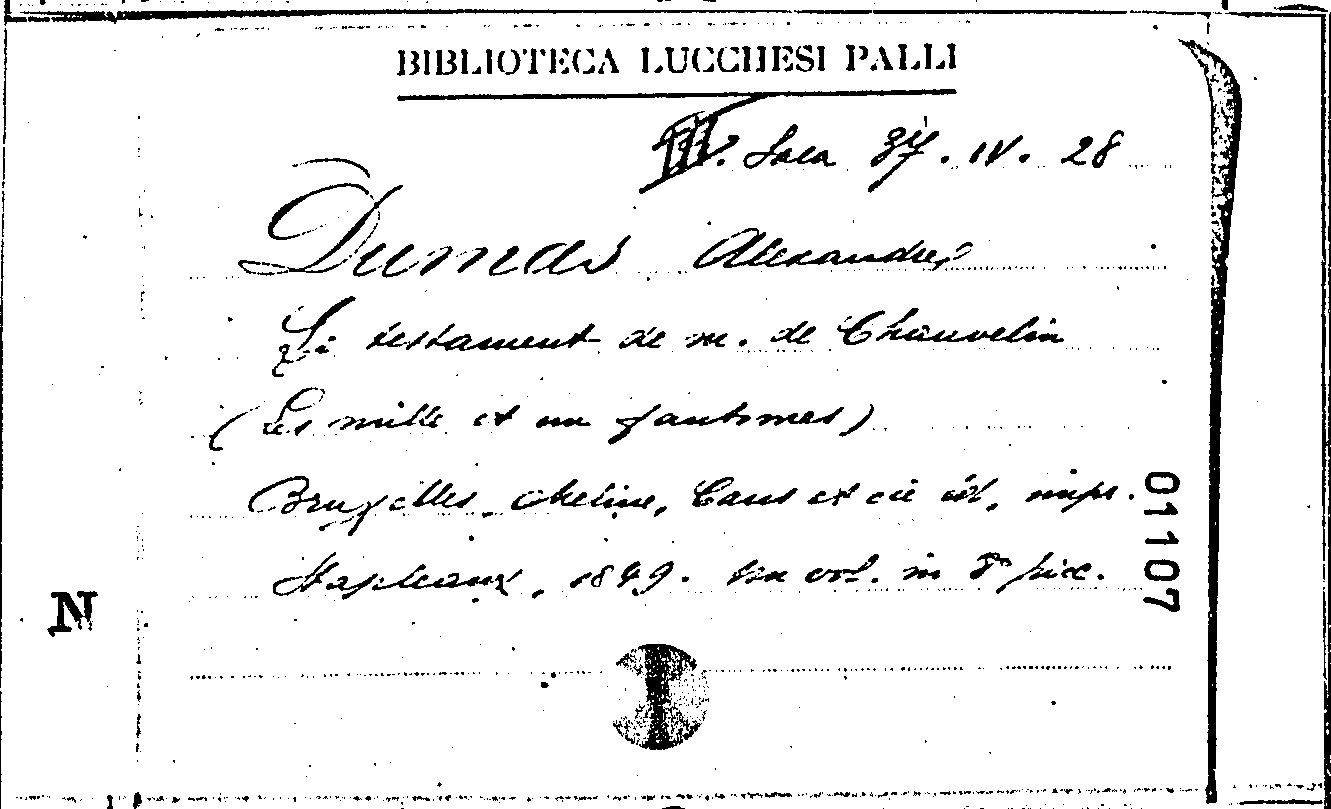 BIBLIOTECA LUCCHESI PALLI
Sala 37. IV. 28
Dumas Alexandre
Le testament de m. de Chauvelin
(Les mille et un fantômes)
Bruxelles, Meline, Cans et cie éd., impr.
Stapleaux, 1849. Un vol. in 8º picc.
01107
N